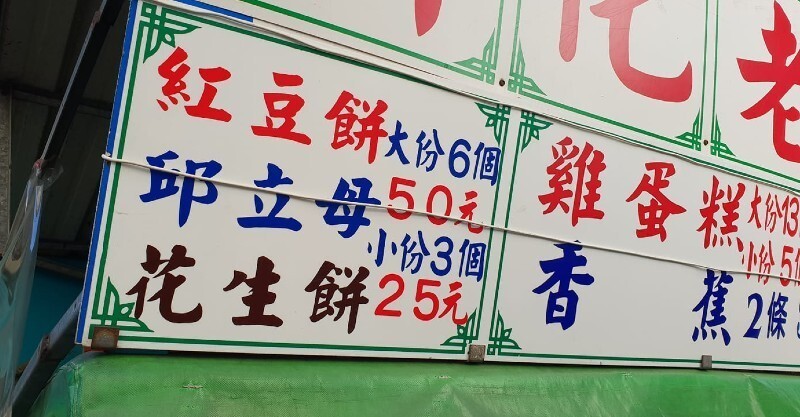 紅豆餅 大份6個
邱立母 50元
小份3個
花生餅 25元
雞蛋糕 大份13
小份5
香蕉 2條